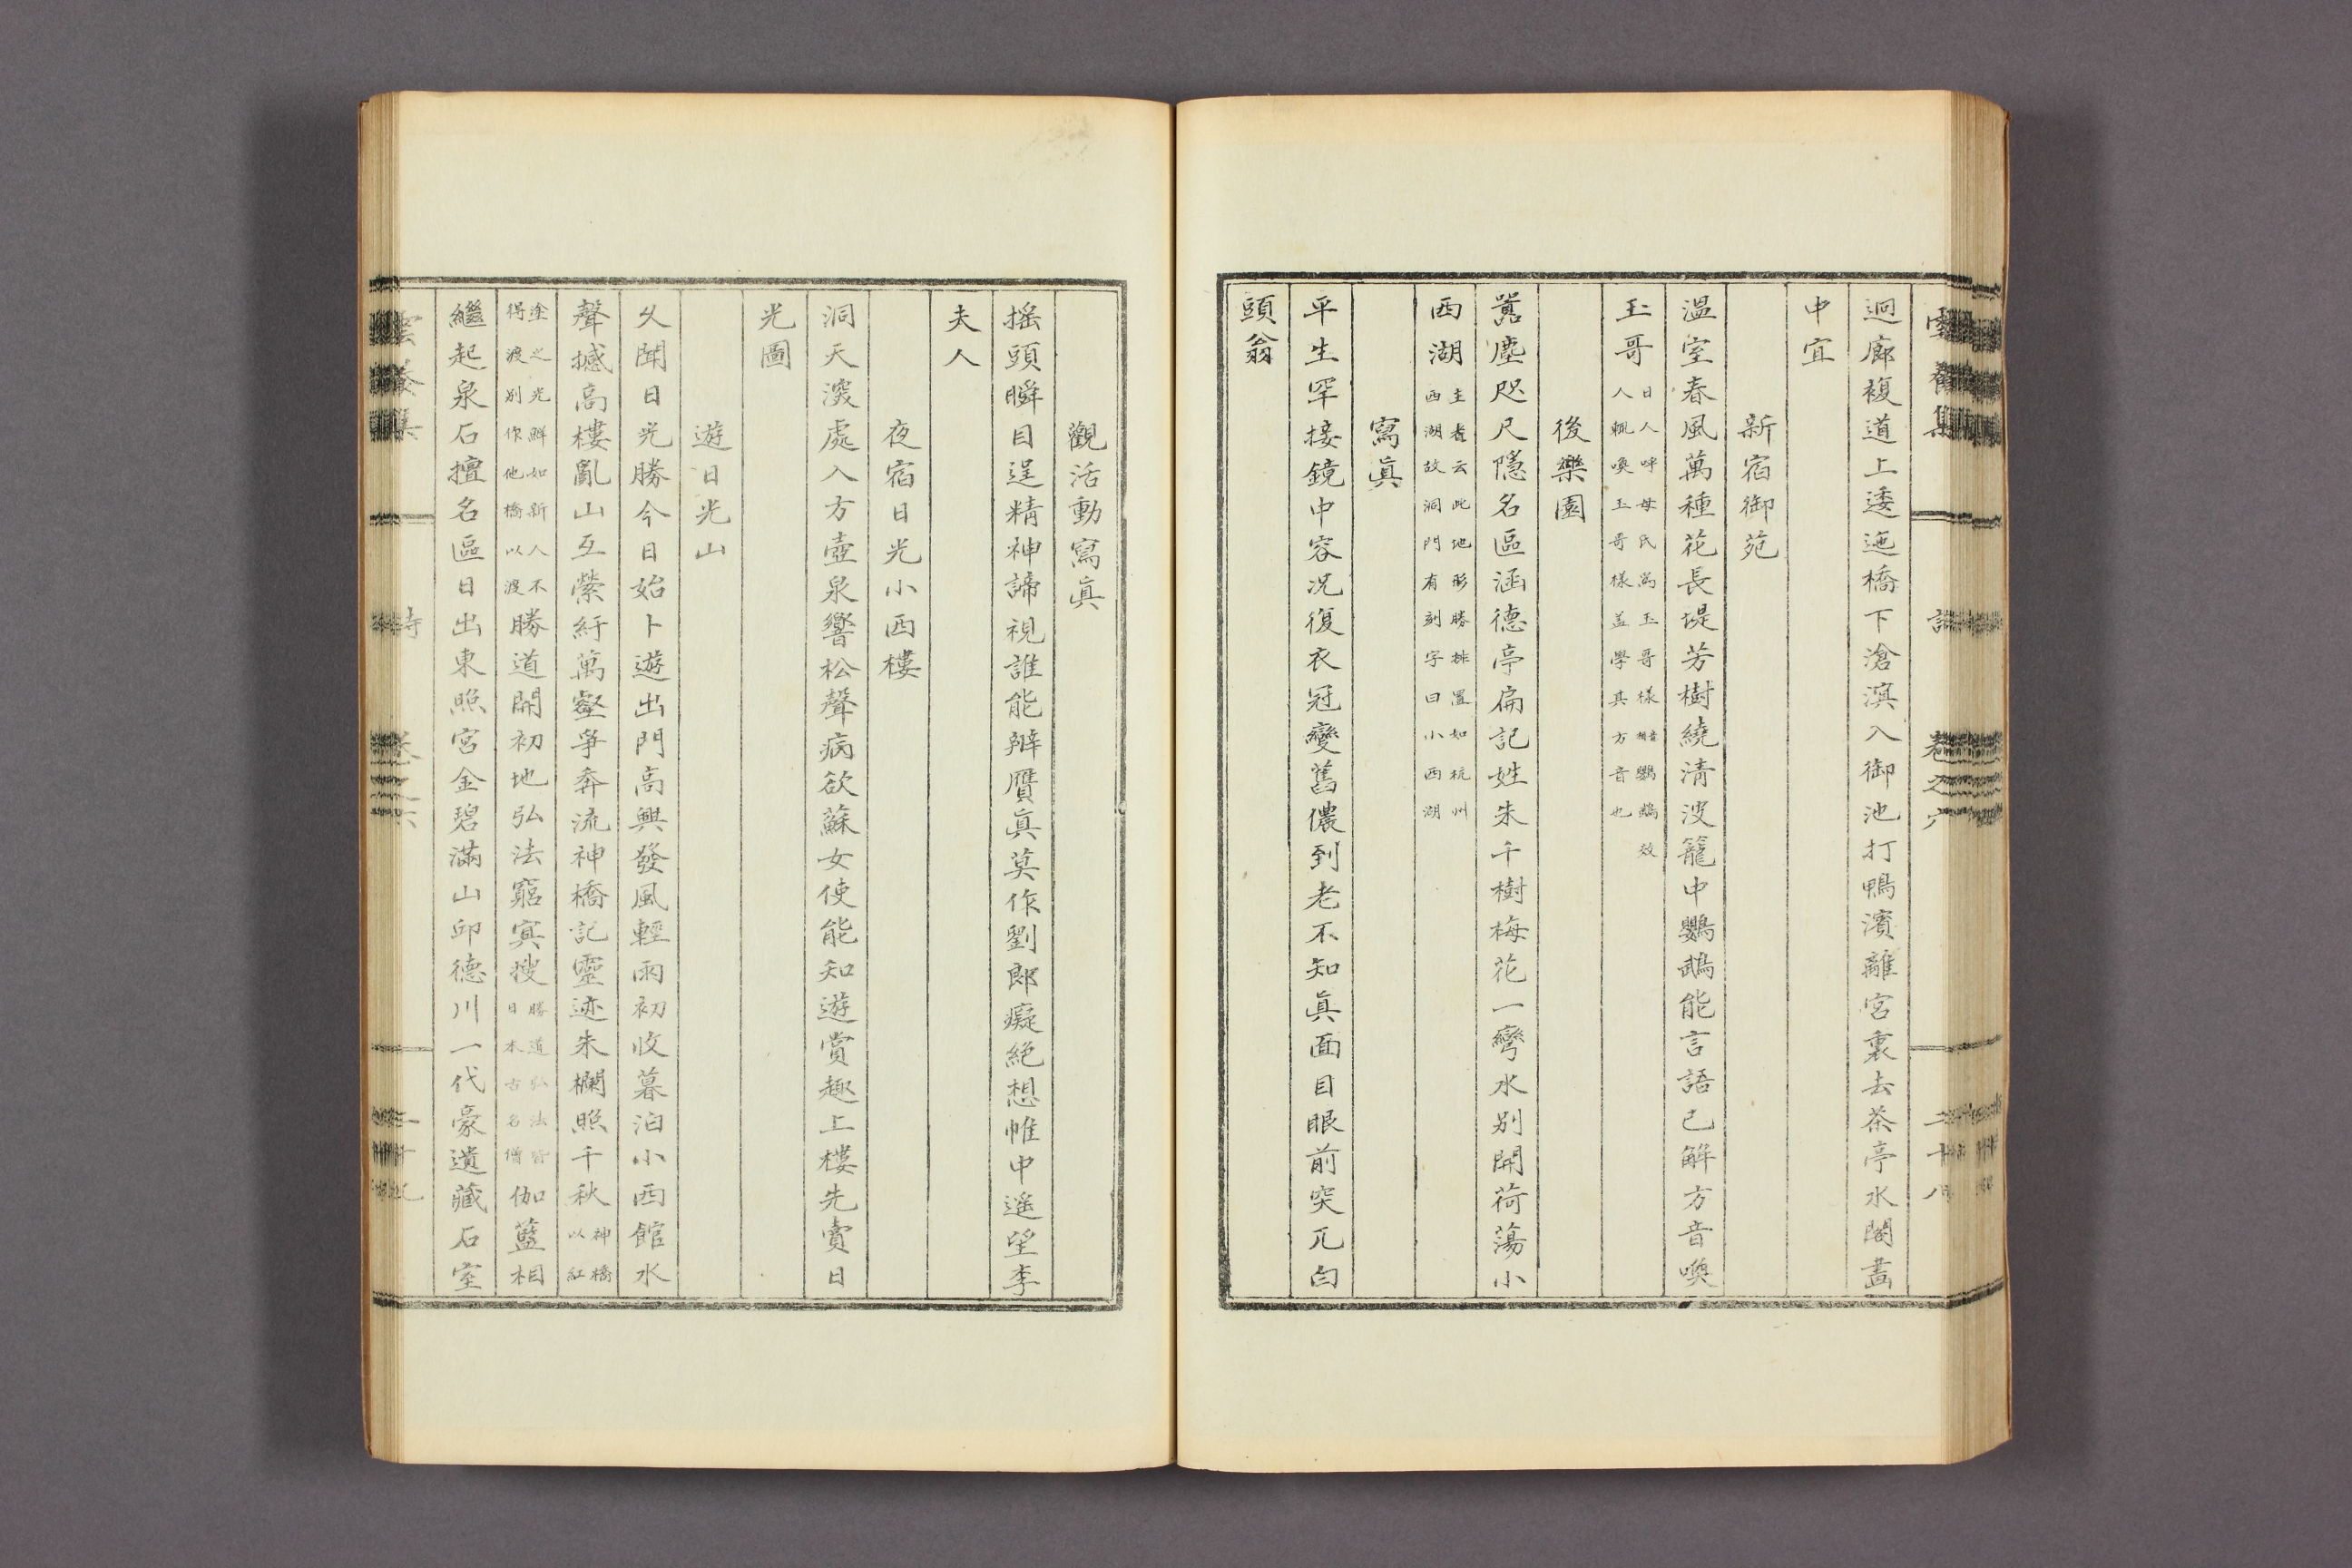 迥廊複道上逶迤橋下滄溟入御池打鴨濱離宮裏去茶亭水閣畵
中宜
新宿御苑
溫室春風萬種花長堤芳樹繞淸波籠中鸚鵡能言語已解方音喚
玉哥日人呼母氏爲玉哥樣 鸚鵡效
人輒喚玉哥樣盖學其方音也
後樂園
囂塵咫尺隱名區涵德亭扁記姓朱千樹梅花一彎水別開荷蕩小
西湖主者云此地形勝排置如杭州
西湖故洞門有刻字曰小西湖
寫眞
平生罕接鏡中容况復衣冠變舊儂到老不知眞面目眼前突兀白
頭翁
觀活動寫眞
搖頭瞬目逞精神諦視誰能辨贋眞莫作劉郞癡絶想帷中遥望李
夫人
夜宿日光小西樓
洞天深處入方壺泉響松聲病欲蘇女使能知遊賞趣上樓先賣日
光圖
遊日光山
久聞日光勝今日始卜遊出門高興發風輕雨初收暮泊小西館水
聲撼高樓亂山互縈紆萬壑爭奔流神橋記靈迹朱欄照千秋神橋
以紅
塗之光鮮如新人不
得渡別作他橋以渡勝道開初地弘法窮冥搜勝道弘法皆
日本古名僧伽藍相
繼起泉石擅名區日出東照宮金碧滿山邱德川一代豪遺藏石室
卷之六
二十八